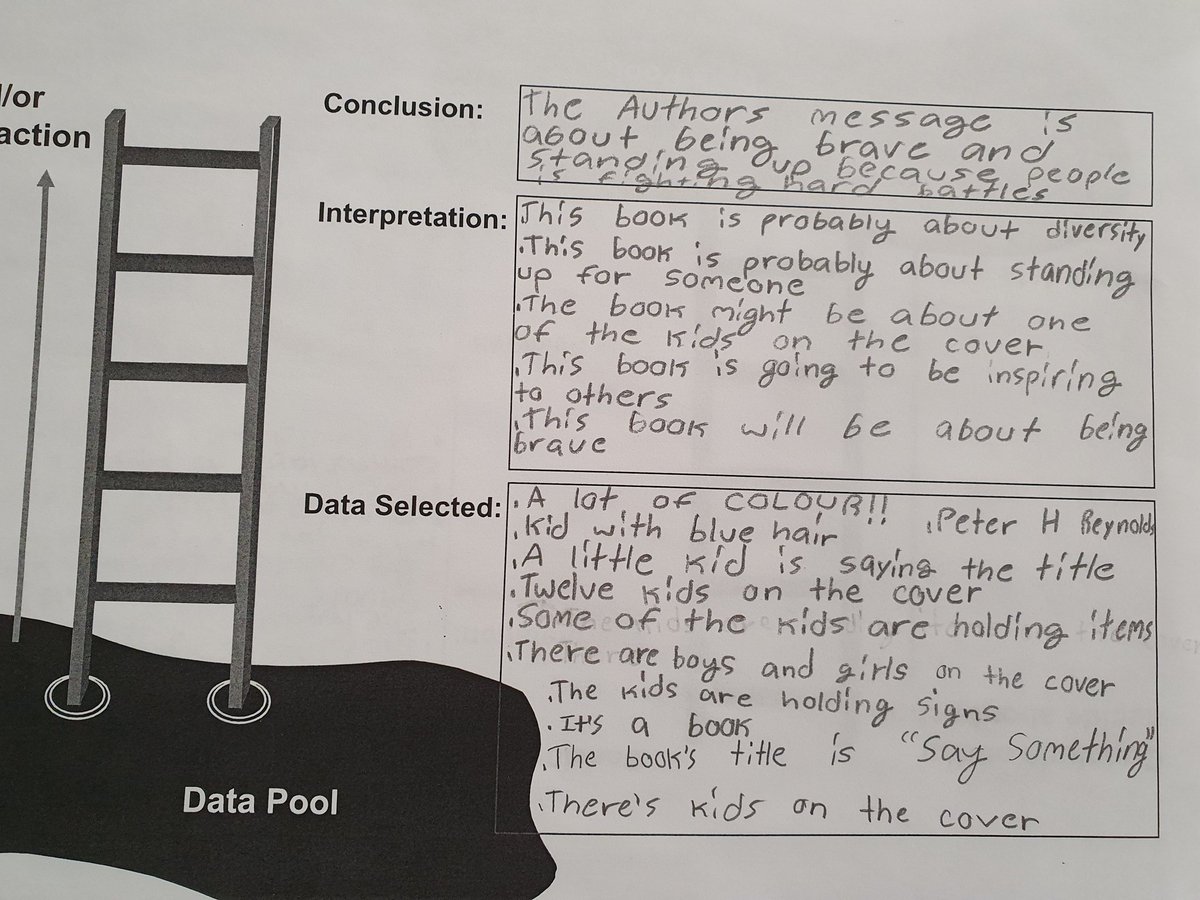 /or
action
Conclusion:
The Authors message is
about being brave and
standing up because people
is fighting hard battles
Interpretation:
This book is probably about diversity
.This book is probably about standing
up for someone
.The book might be about one
of the kids on the cover
.This book is going to be inspiring
to others
.This book will be about being
brave
Data Selected:
.A lot of COLOUR!!
.Kid with blue hair .Peter H Reynolds
.A little kid is saying the title
.Twelve kids on the cover
.Some of the kids are holding items
.There are boys and girls on the cover
.The kids are holding signs
.It's a book
.The book's title is "Say Something"
.There's kids on the cover
Data Pool